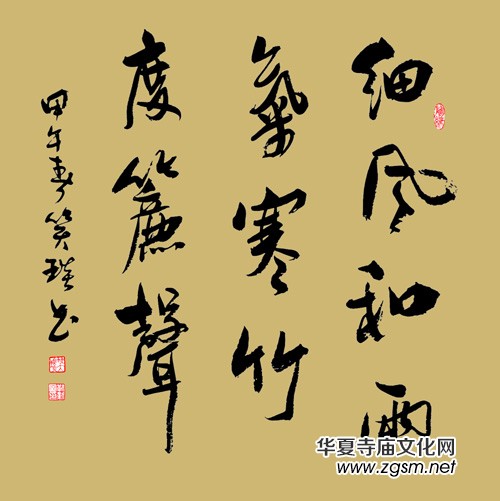 细风和雨
氣寒竹
度簾聲
甲午春笑琰书
华夏寺庙文化网
www.zgsm.net